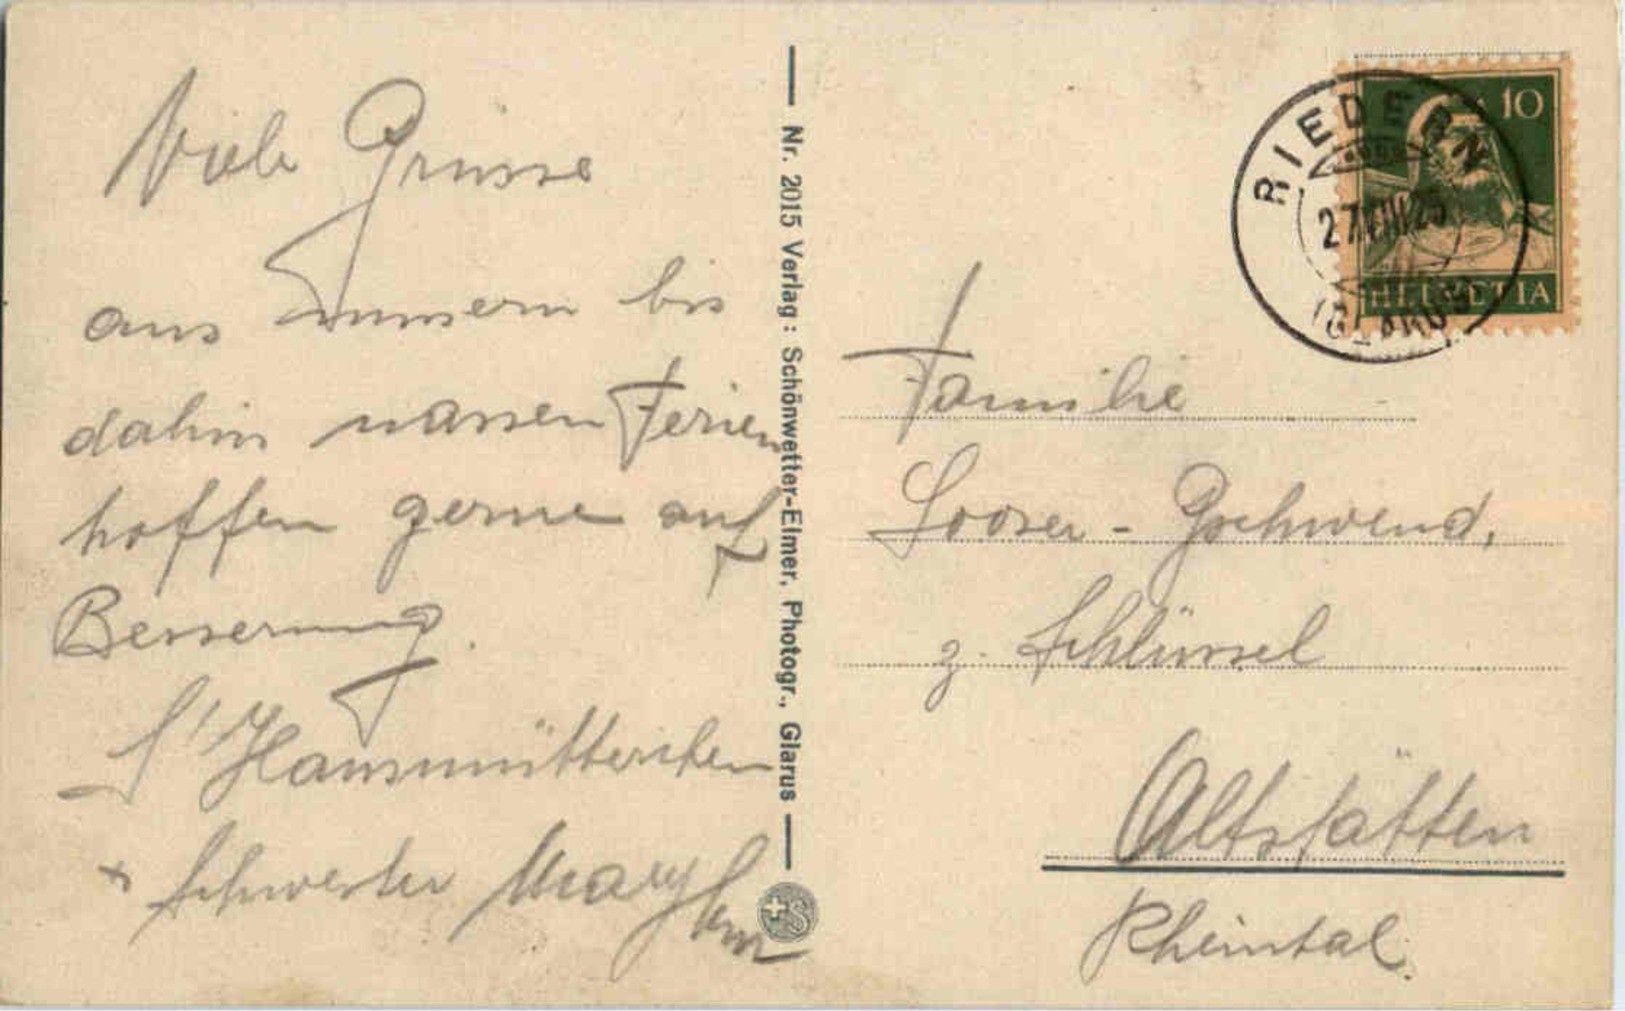 Viele Grüsse
aus unsern bis
dahin nassen Ferien
hoffen gerne auf
Besserung.
s' Hausmütterchen
+ Schwester Mary
Nr. 2015 Verlag: Schönwetter-Elmer, Photogr., Glarus
RIEDERN
27.VIII.25
(GLARUS)
10
HELVETIA
Familie
Looser - Gschwend,
z. Schlüssel
Altstätten
Rheintal.